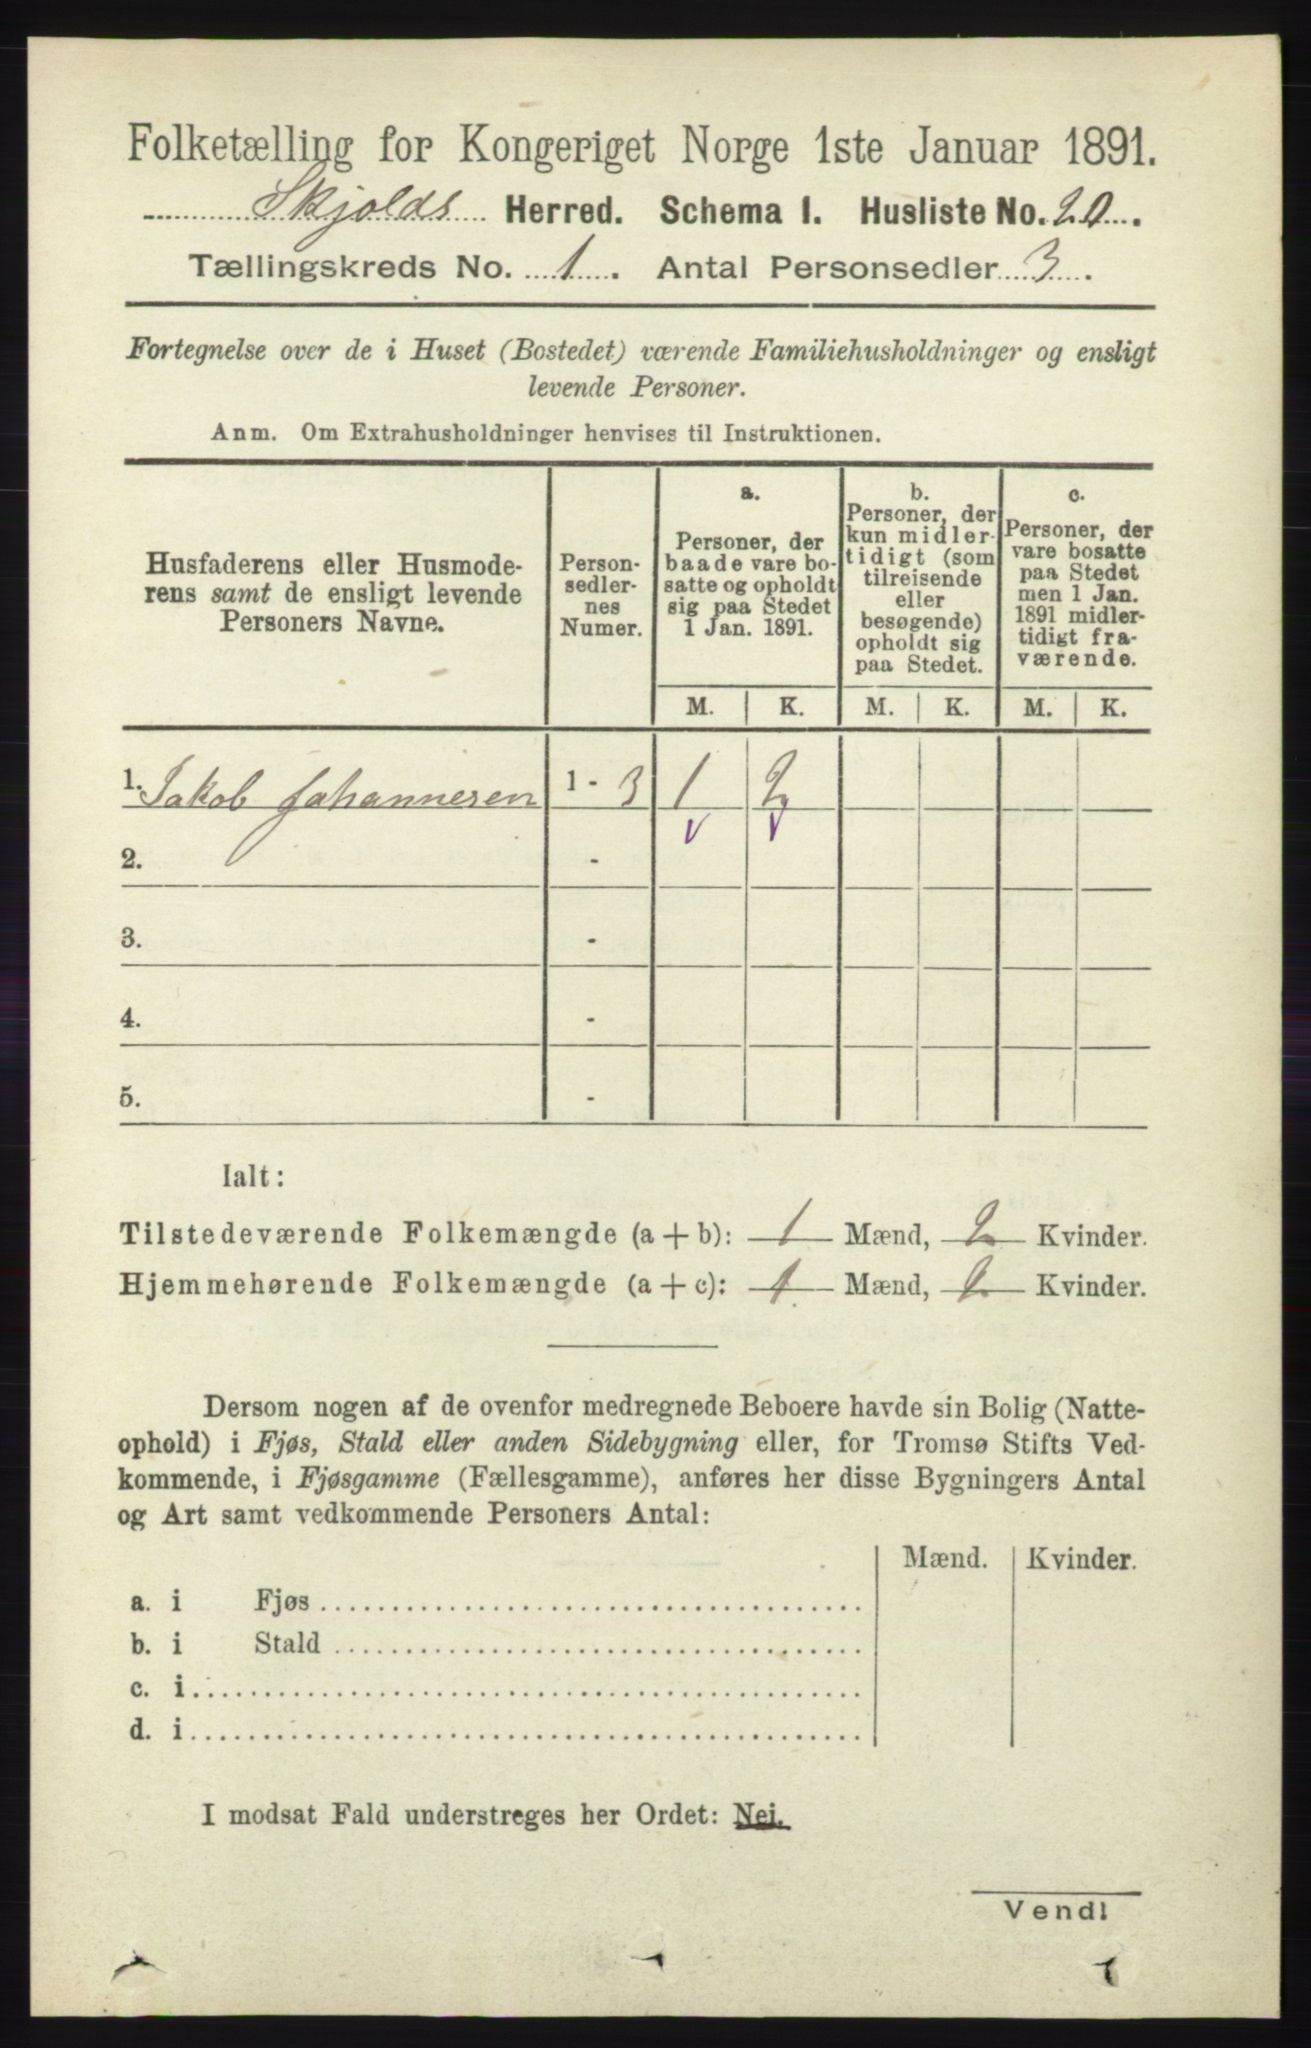 Folketælling for Kongeriget Norge 1ste Januar 1891.
Skjolds Herred. Schema I. Husliste No. 20.
Tællingskreds No. 1. Antal Personsedler 3.
Fortegnelse over de i Huset (Bostedet) værende Familiehusholdninger og ensligt
levende Personer.
Anm. Om Extrahusholdninger henvises til Instruktionen.
Husfaderens eller Husmode-
rens samt de ensligt levende
Personers Navne.
Person-
sedler-
nes
Numer.
a.
Personer, der
baade vare bo-
satte og opholdt
sig paa Stedet
1 Jan. 1891.
b.
Personer, der
kun midler-
tidigt (som
tilreisende
eller
besøgende)
opholdt sig
paa Stedet.
c.
Personer, der
vare bosatte
paa Stedet
men 1 Jan.
1891 midler-
tidigt fra-
værende.
M. K. M. K. M. K.
1. Jakob Johannesen 1 - 3 1 2
2. -
3. -
4. -
5. -
Ialt:
Tilstedeværende Folkemængde (a + b): 1 Mænd, 2 Kvinder.
Hjemmehørende Folkemængde (a + c): 1 Mænd, 2 Kvinder.
Dersom nogen af de ovenfor medregnede Beboere havde sin Bolig (Natte-
ophold) i Fjøs, Stald eller anden Sidebygning eller, for Tromsø Stifts Ved-
kommende, i Fjøsgamme (Fællesgamme), anføres her disse Bygningers Antal
og Art samt vedkommende Personers Antal:
Mænd. Kvinder.
a. i Fjøs
b. i Stald
c. i
d. i
I modsat Fald understreges her Ordet: Nei.
Vend!